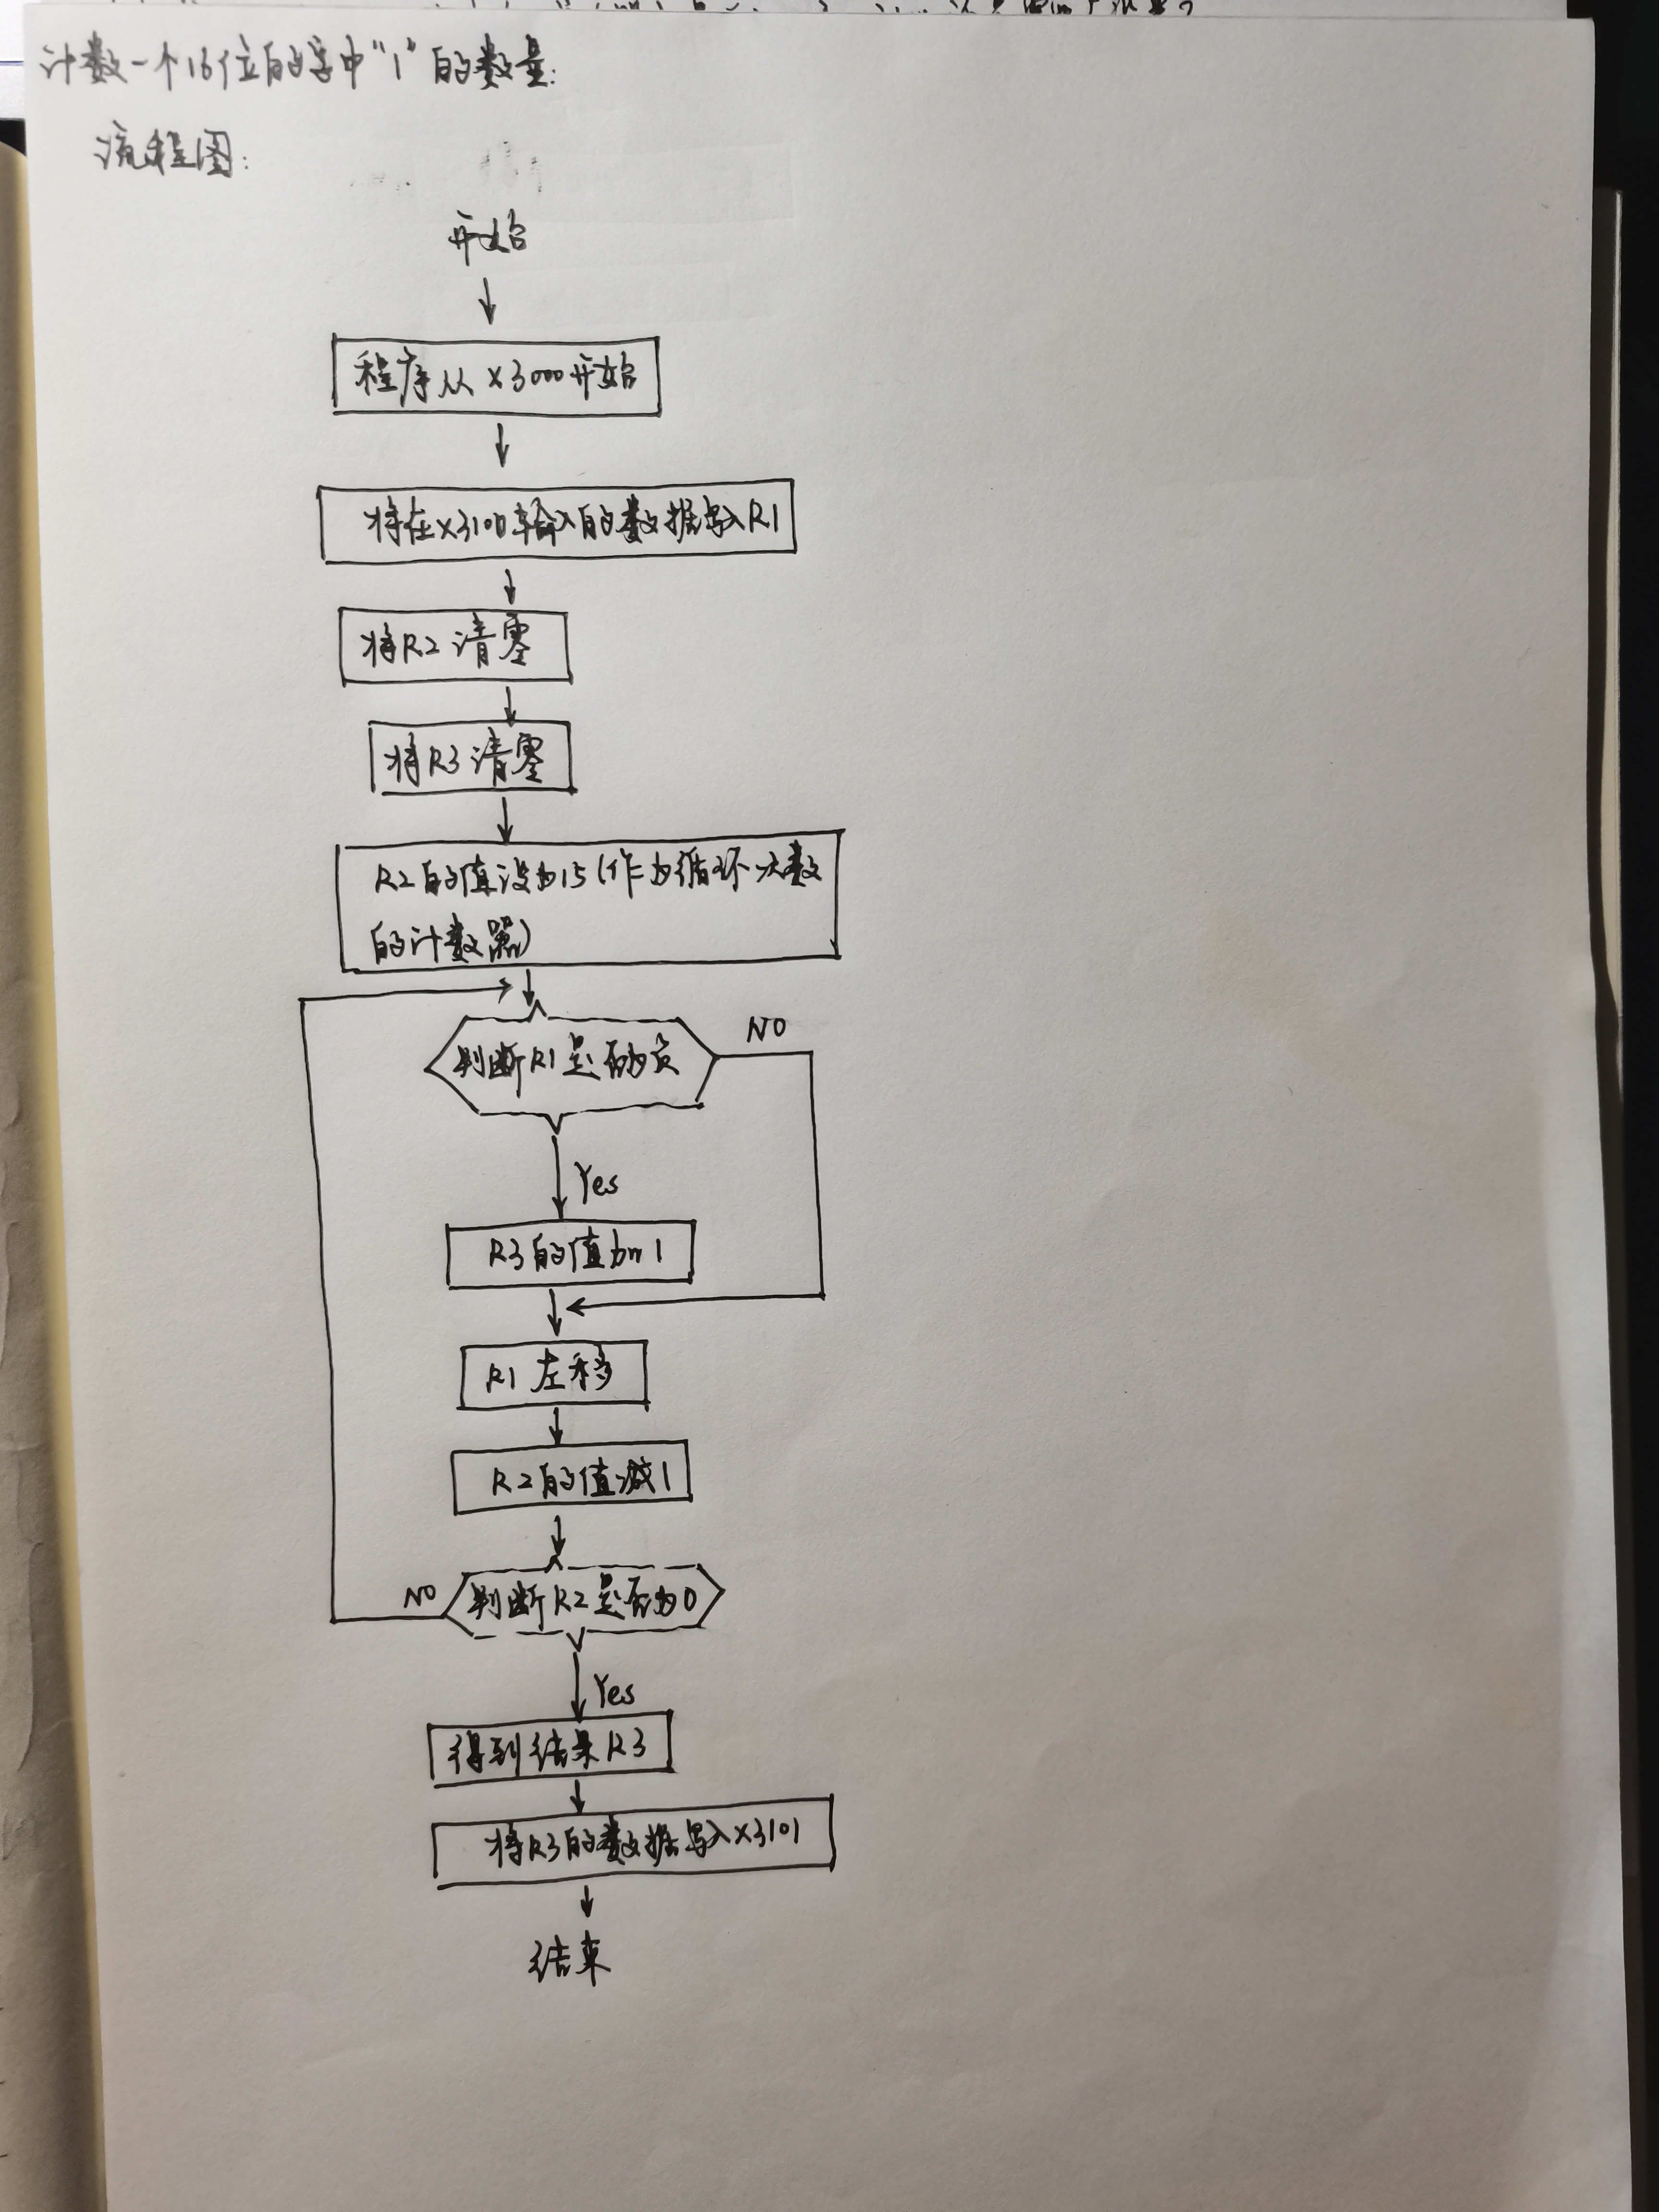 计数一个16位的字中“1”的数量:
流程图:
开始
程序从x3000开始
将在x3100输入的数据写入R1
将R2清零
将R3清零
R2的值设为15(作为循环次数
的计数器)
判断R1是否为负
NO
Yes
R3的值加1
R1左移
R2的值减1
NO
判断R2是否为0
Yes
得到结果R3
将R3的数据写入x3101
结束